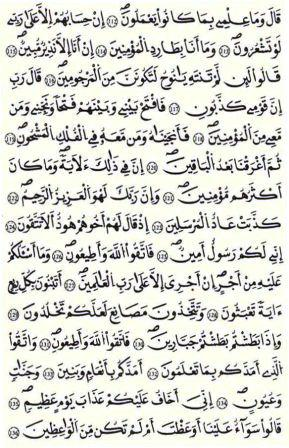 قَالَ وَمَا عِلْمِي بِمَا كَانُوا يَعْمَلُونَ ۝١١٢ إِنْ حِسَابُهُمْ إِلَّا عَلَىٰ رَبِّي
لَوْ تَشْعُرُونَ ۝١١٣ وَمَا أَنَا بِطَارِدِ الْمُؤْمِنِينَ ۝١١٤ إِنْ أَنَا إِلَّا نَذِيرٌ مُّبِينٌ ۝١١٥
قَالُوا لَئِن لَّمْ تَنتَهِ يَا نُوحُ لَتَكُونَنَّ مِنَ الْمَرْجُومِينَ ۝١١٦ قَالَ رَبِّ
إِنَّ قَوْمِي كَذَّبُونِ ۝١١٧ فَافْتَحْ بَيْنِي وَبَيْنَهُمْ فَتْحًا وَنَجِّنِي وَمَن
مَّعِيَ مِنَ الْمُؤْمِنِينَ ۝١١٨ فَأَنجَيْنَاهُ وَمَن مَّعَهُ فِي الْفُلْكِ الْمَشْحُونِ ۝١١٩
ثُمَّ أَغْرَقْنَا بَعْدُ الْبَاقِينَ ۝١٢٠ إِنَّ فِي ذَٰلِكَ لَآيَةً وَمَا كَانَ
أَكْثَرُهُم مُّؤْمِنِينَ ۝١٢١ وَإِنَّ رَبَّكَ لَهُوَ الْعَزِيزُ الرَّحِيمُ ۝١٢٢
كَذَّبَتْ عَادٌ الْمُرْسَلِينَ ۝١٢٣ إِذْ قَالَ لَهُمْ أَخُوهُمْ هُودٌ أَلَا تَتَّقُونَ ۝١٢٤
إِنِّي لَكُمْ رَسُولٌ أَمِينٌ ۝١٢٥ فَاتَّقُوا اللَّهَ وَأَطِيعُونِ ۝١٢٦ وَمَا أَسْأَلُكُمْ
عَلَيْهِ مِنْ أَجْرٍ إِنْ أَجْرِيَ إِلَّا عَلَىٰ رَبِّ الْعَالَمِينَ ۝١٢٧ أَتَبْنُونَ بِكُلِّ رِيعٍ
آيَةً تَعْبَثُونَ ۝١٢٨ وَتَتَّخِذُونَ مَصَانِعَ لَعَلَّكُمْ تَخْلُدُونَ ۝١٢٩
وَإِذَا بَطَشْتُم بَطَشْتُمْ جَبَّارِينَ ۝١٣٠ فَاتَّقُوا اللَّهَ وَأَطِيعُونِ ۝١٣١ وَاتَّقُوا
الَّذِي أَمَدَّكُم بِمَا تَعْلَمُونَ ۝١٣٢ أَمَدَّكُم بِأَنْعَامٍ وَبَنِينَ ۝١٣٣ وَجَنَّاتٍ
وَعُيُونٍ ۝١٣٤ إِنِّي أَخَافُ عَلَيْكُمْ عَذَابَ يَوْمٍ عَظِيمٍ ۝١٣٥
قَالُوا سَوَاءٌ عَلَيْنَا أَوَعَظْتَ أَمْ لَمْ تَكُن مِّنَ الْوَاعِظِينَ ۝١٣٦